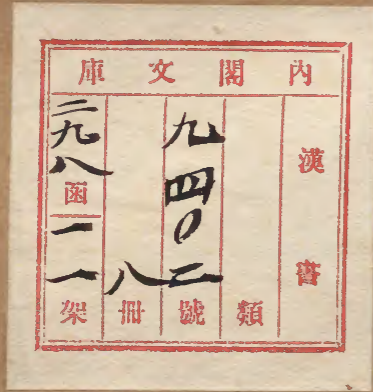 內閣文庫
漢書
類
九四〇二號
八冊
二九八函
一一架